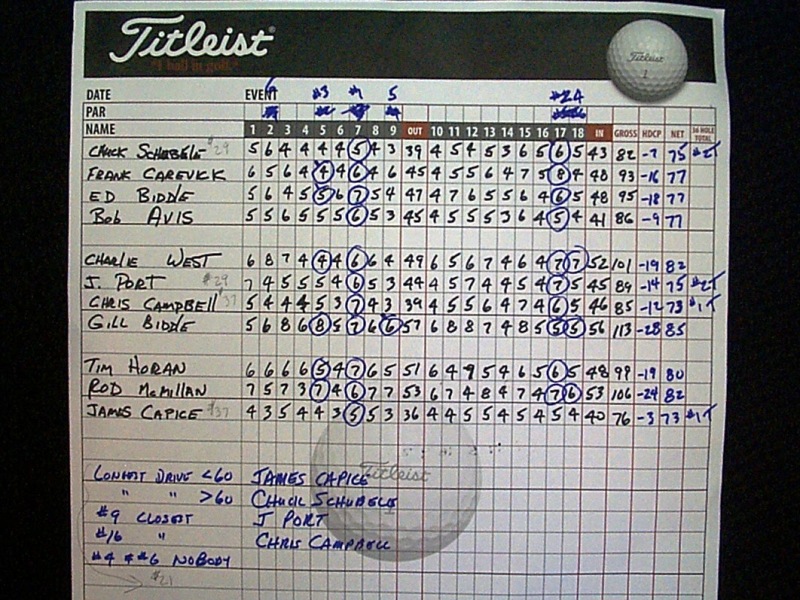 Titleist
"#1 ball in golf."
Titleist 1
DATE EVENT #3 5 #24
PAR
NAME 1 2 3 4 5 6 7 8 9 OUT 10 11 12 13 14 15 16 17 18 IN GROSS HDCP NET 36 HOLE TOTAL
CHUCK SCHUBELE $29 5 6 4 4 4 4 5 4 3 39 4 5 4 5 3 6 5 6 5 43 82 -7 75 #2T
FRANK CAREVICK 6 5 6 4 4 4 6 4 6 45 4 5 5 6 4 7 5 8 4 48 93 -16 77
ED BIDDE 5 6 4 5 5 6 7 5 4 47 4 7 6 5 5 6 4 6 5 48 95 -18 77
BOB AVIS 5 5 6 5 5 5 6 5 3 45 4 5 5 5 3 6 4 5 4 41 86 -9 77
CHARLIE WEST 6 8 7 4 4 4 6 6 4 49 6 5 6 7 4 6 4 7 7 52 101 -19 82
J. PORT $29 7 4 5 5 5 4 6 5 3 44 4 5 7 4 4 5 4 7 5 45 89 -14 75 #2T
CHRIS CAMPBELL $37 5 4 4 4 5 3 7 4 3 39 4 5 5 6 4 7 4 6 5 46 85 -12 73 #1T
GILL BIDDE 5 6 8 6 8 5 7 6 6 57 6 8 8 7 4 8 5 5 5 56 113 -28 85
TIM HORAN 6 6 6 6 5 4 7 6 5 51 6 4 9 5 4 6 5 6 5 48 99 -19 80
ROD McMILLAN 7 5 7 3 7 4 6 7 7 53 6 7 4 8 4 7 4 7 6 53 106 -24 82
JAMES CAPICE $37 4 3 5 4 4 3 5 5 3 36 4 4 5 5 4 5 4 5 4 40 76 -3 73 #1T
LONGEST DRIVE <60 JAMES CAPICE
" " >60 CHUCK SCHUBELE
#9 CLOSEST J PORT
#16 " CHRIS CAMPBELL
#4 & #6 NOBODY
$21
Titleist